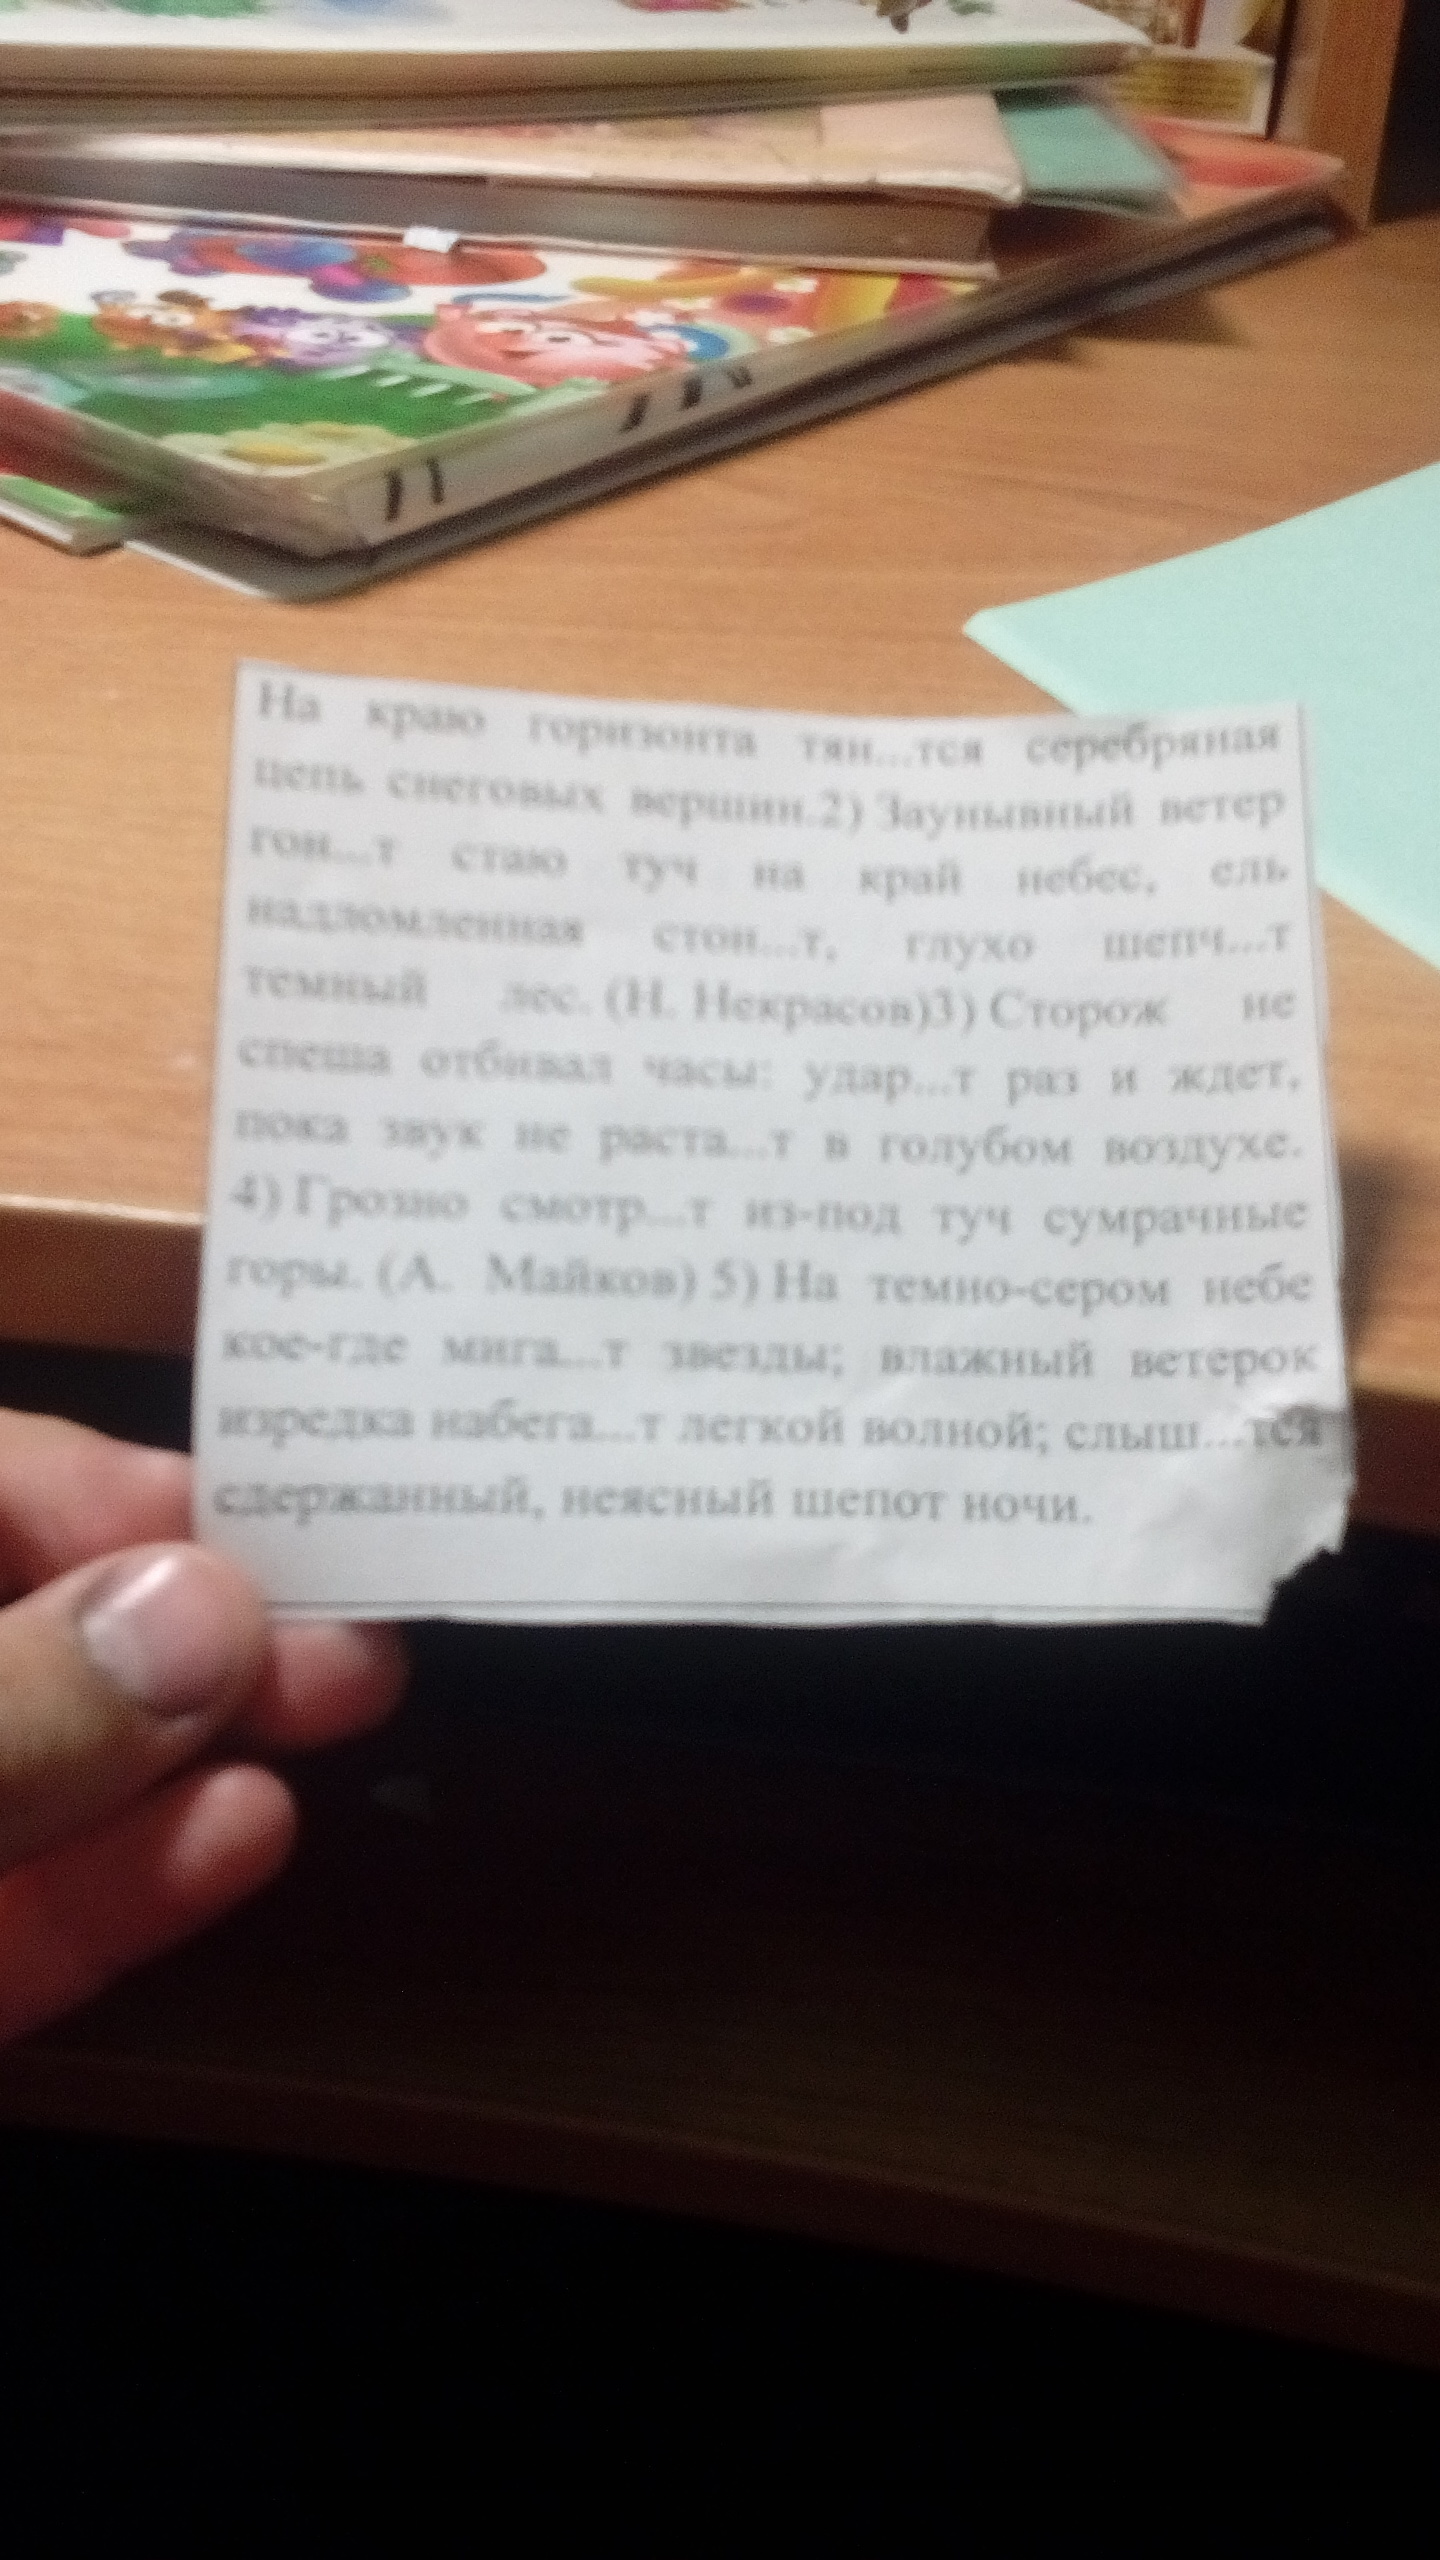 На краю горизонта тян...тся серебряная
цепь снеговых вершин.2) Заунывный ветер
гон...т стаю туч на край небес, ель
надломленная стон...т, глухо шепч...т
темный лес. (Н. Некрасов)3) Сторож не
спеша отбивал часы: удар...т раз и ждет,
пока звук не раста...т в голубом воздухе.
4) Грозно смотр...т из-под туч сумрачные
горы. (А. Майков) 5) На темно-сером небе
кое-где мига...т звезды; влажный ветерок
изредка набега...т легкой волной; слыш...тся
сдержанный, неясный шепот ночи.